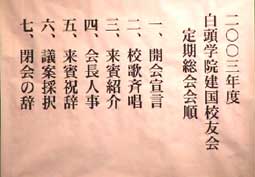 二〇〇三年度
白頭学院建国校友会
定期総会会順
一、開会宣言
二、校歌斉唱
三、来賓紹介
四、会長人事
五、来賓祝辞
六、議案採択
七、閉会の辞